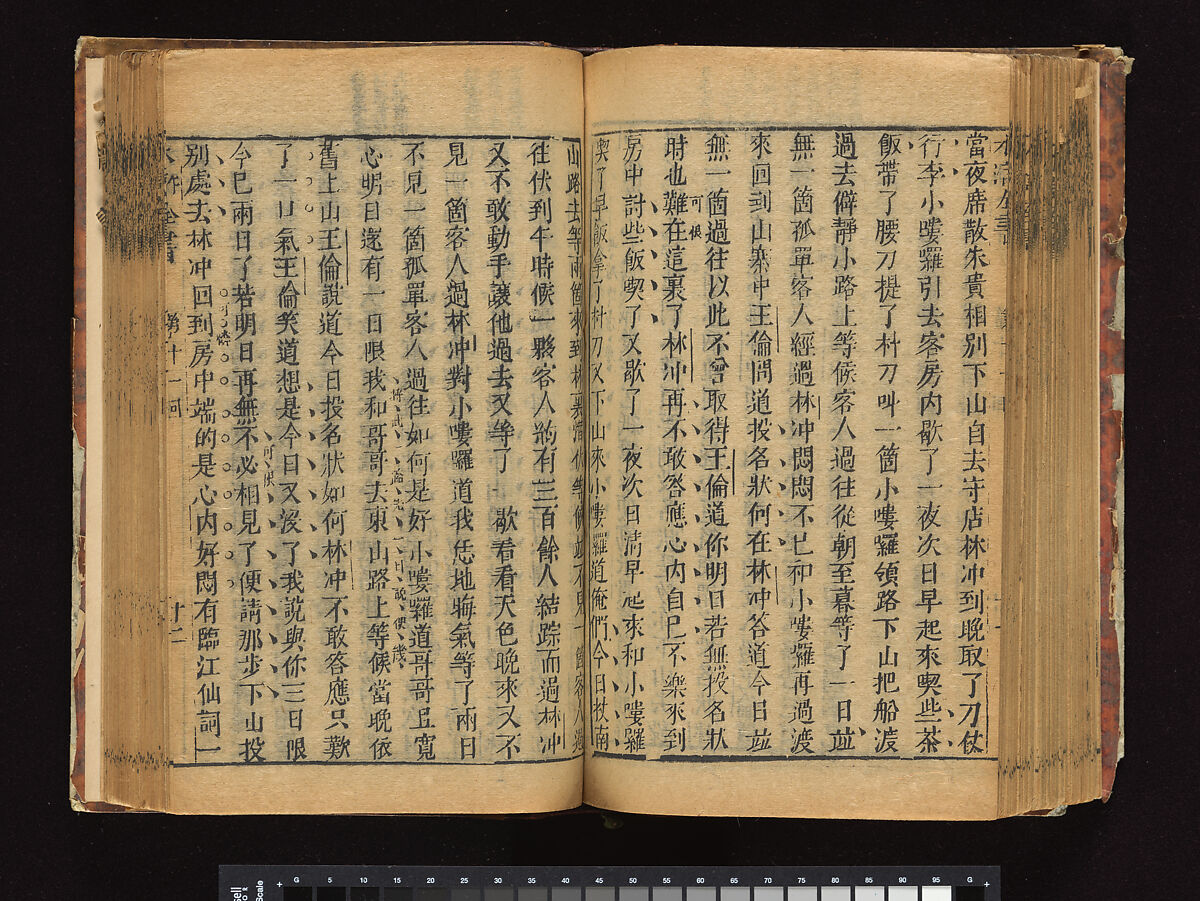 當夜席散朱貴相別下山自去守店林冲到晚取了刀仗
行李小嘍羅引去客房內歇了一夜次日早起來喫些茶
飯帶了腰刀提了朴刀叫一箇小嘍羅領路下山把船渡
過去僻靜小路上等候客人過往從朝至暮等了一日並
無一箇孤單客人經過林冲悶悶不已和小嘍羅再過渡
來回到山寨中王倫問道投名狀何在林冲答道今日並
無一箇過往以此不曾取得王倫道你明日若無投名狀
可恨
時也難在這裏了林冲再不敢答應心內自己不樂來到
房中討些飯喫了又歇了一夜次日清早起來和小嘍羅
喫了早飯拿了朴刀又下山來小嘍羅道俺們今日投南
山路去等兩箇來到林裏潛伏等候並不見一箇客人過
往伏到午時候一夥客人約有三百餘人結踪而過林冲
又不敢動手讓他過去又等了一歇看看天色晚來又不
見一箇客人過林冲對小嘍羅道我恁地晦氣等了兩日
不見一箇孤單客人過往如何是好小嘍羅道哥哥且寬
心明日還有一日限我和哥哥去東山路上等候當晚依
舊上山王倫說道今日投名狀如何林冲不敢答應只歎
了一口氣王倫笑道想是今日又沒了我說與你三日限
可恨
今已兩日了若明日再無不必相見了便請那步下山投
別處去林冲回到房中端的是心內好悶有臨江仙詞一
水滸全書
第十一回
十二